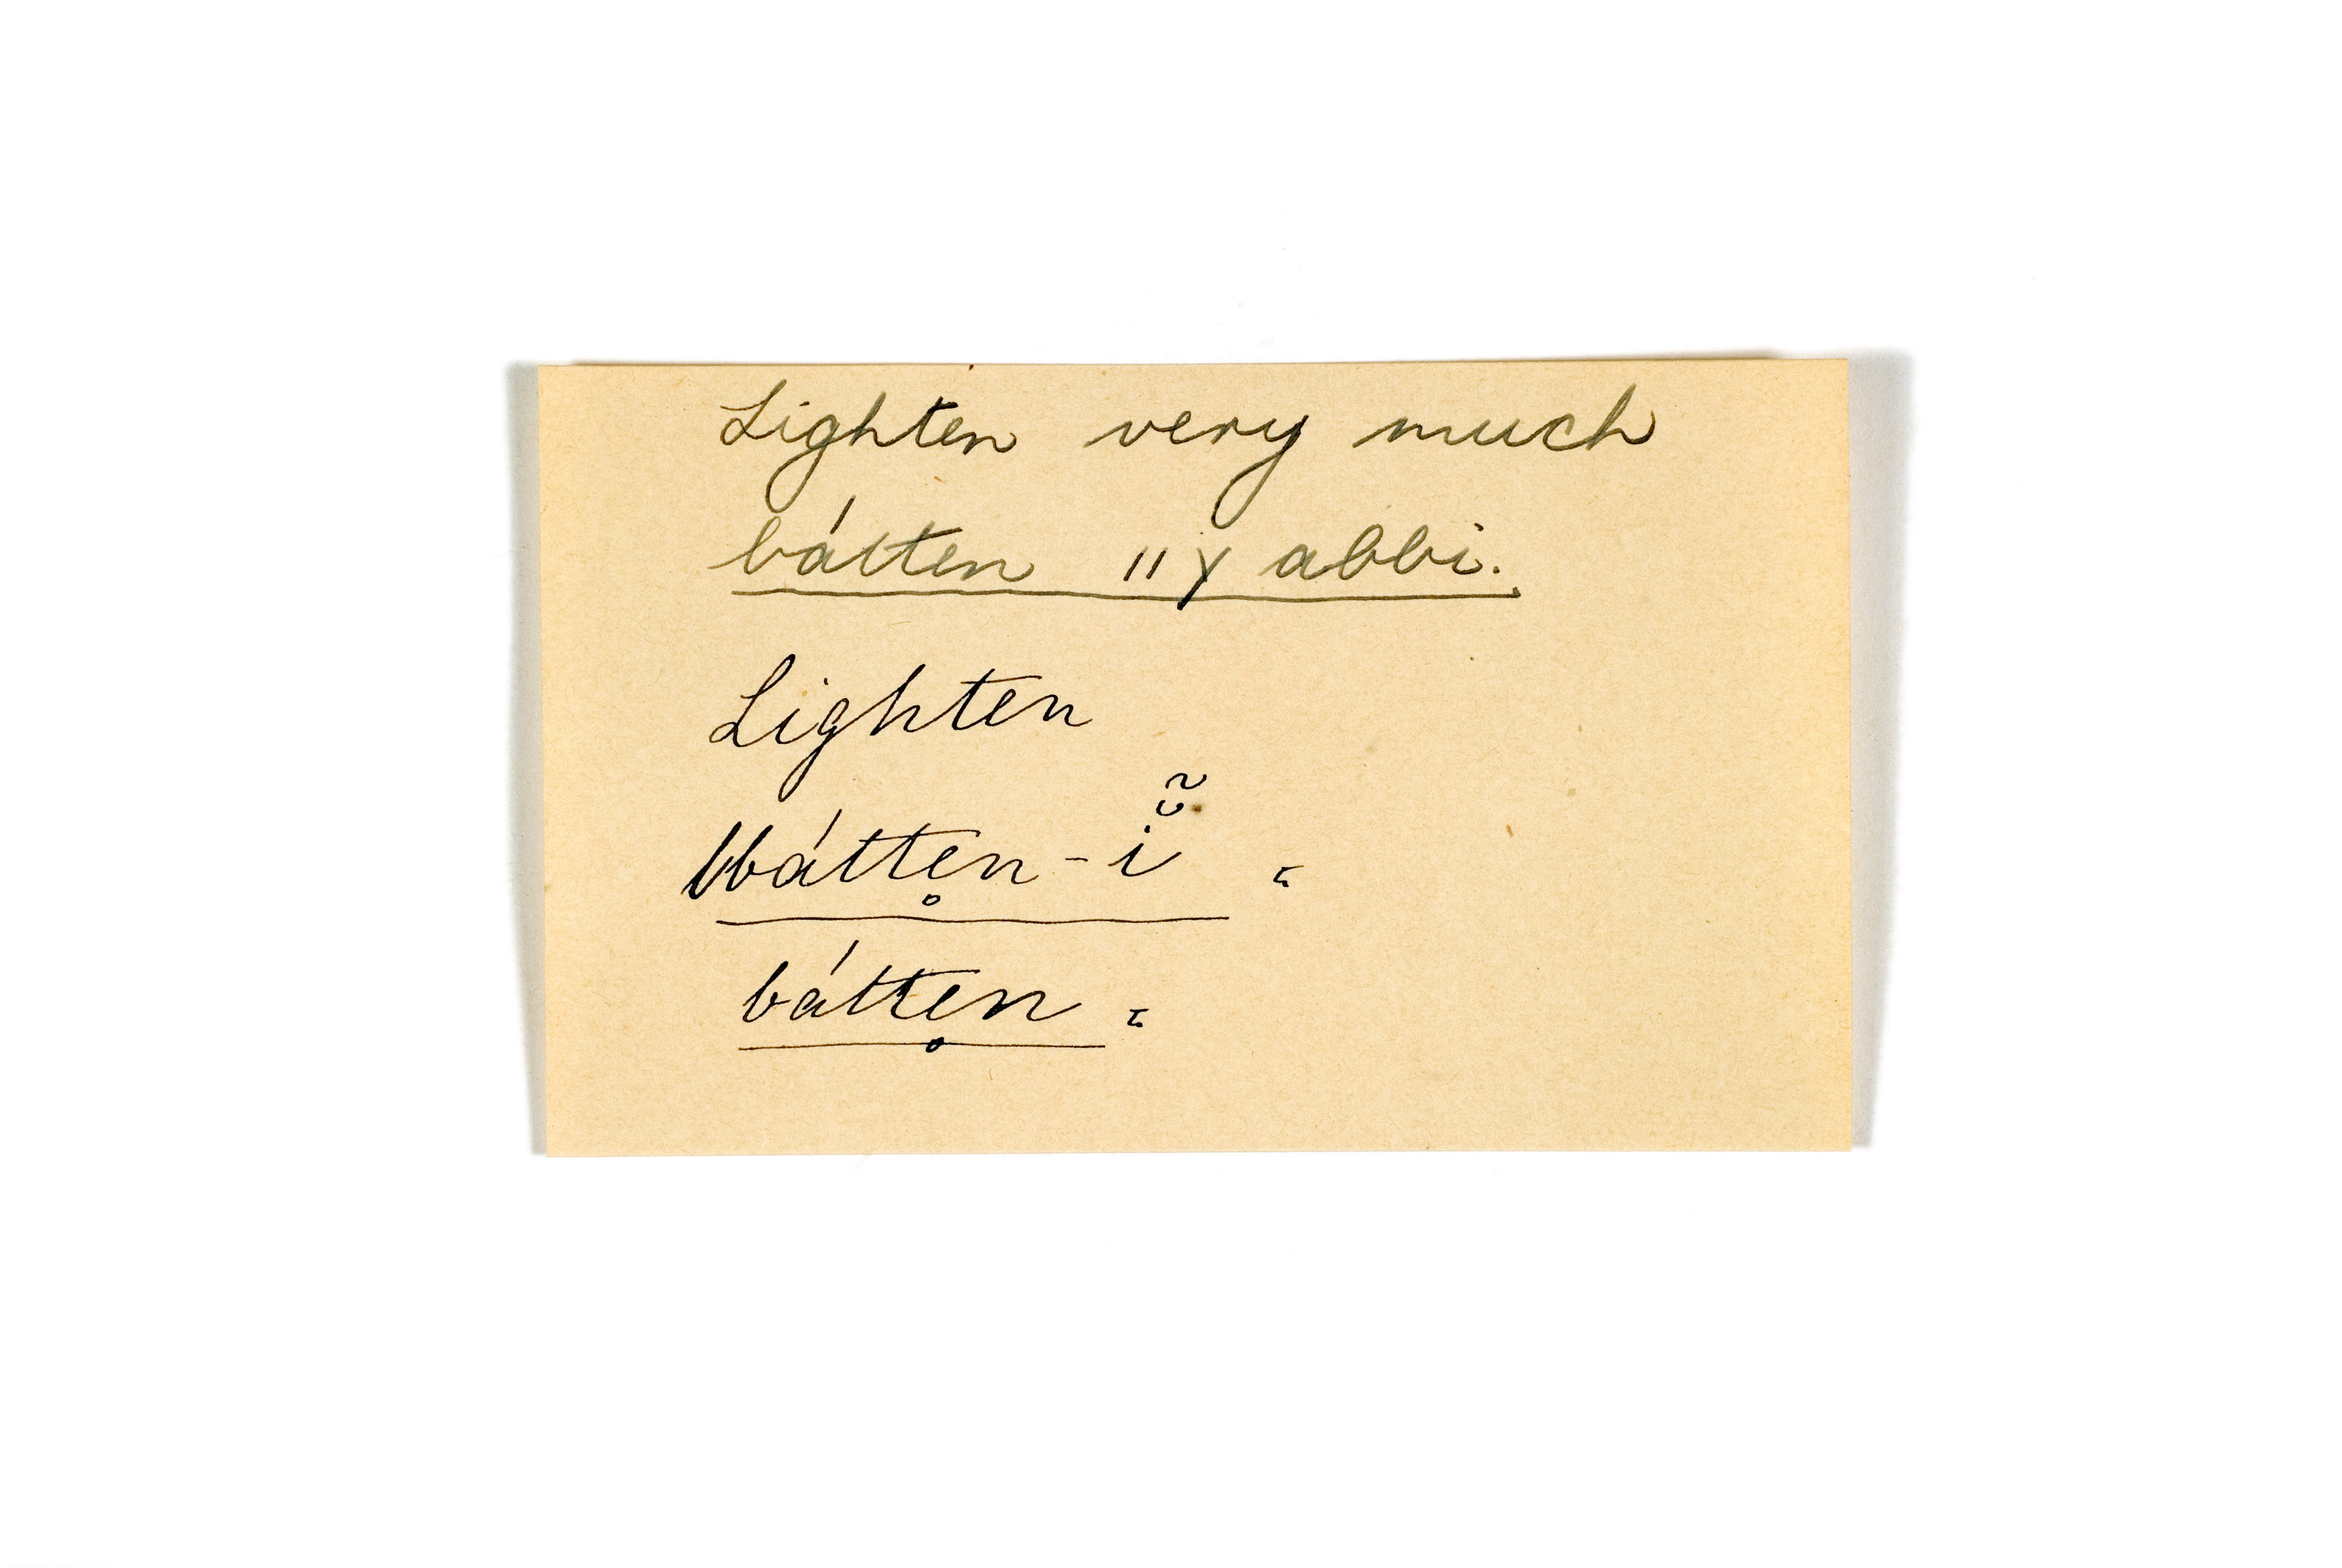 Lighten very much
bátten " y abbi.
Lighten
bátte̥n - ĭ̃ =
bátte̥n =